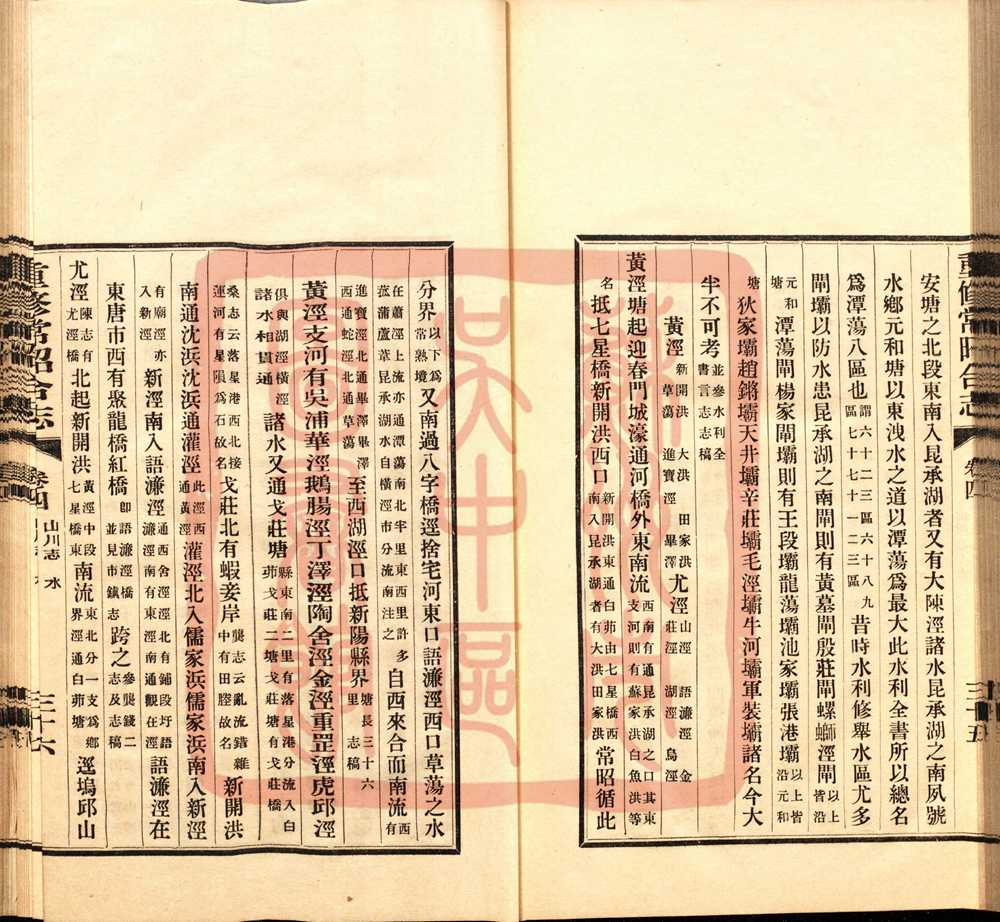 安塘之北段東南入昆承湖者又有大陳涇諸水昆承湖之南夙號
水鄉元和塘以東洩水之道以潭蕩爲最大此水利全書所以總名
爲潭蕩八區也謂六十二三區六十八九區七十七十一二三區昔時水利修舉水區尤多
閘壩以防水患昆承湖之南閘則有黃墓閘殷莊閘螺螄涇閘以上皆沿
元和塘潭蕩閘楊家閘壩則有王段壩龍蕩壩池家壩張港壩以上皆沿元和
塘狄家壩趙鏘壩天井壩辛莊壩毛涇壩牛河壩軍裝壩諸名今大
半不可考並參水利全書言志志稿
黃涇新開洪 大洪 田家洪 草蕩 進寶涇 畢澤尤涇山涇 語濂涇 金莊涇 湖涇 烏涇
黃涇塘起迎春門城濠通河橋外東南流西南有通昆承湖之口其東支河則有蘇家洪白魚洪等
名抵七星橋新開洪西口新開洪東通白茆塘由七星橋西南入昆承湖者有大洪田家洪常昭循此
重修常昭合志
卷四
三十五
分界以下爲常熟境又南過八字橋逕捨宅河東口語濂涇西口草蕩之水
在蕭涇上流亦通潭蕩南北半里東西里許多菰蒲蘆葦昆承湖水自橫涇市分流南注之自西來合而南流西有
進寶涇北通畢澤畢澤西通蛇涇北通草蕩至西湖涇口抵新陽縣界塘長三十六里志稿
黃涇支河有吳浦華涇鵝腸涇丁澤涇陶舍涇金涇重罡涇虎邱涇
俱與湖涇橫涇諸水相貫通諸水又通戈莊塘縣東南二里有落星港分流入白茆戈莊二塘戈莊塘有戈莊橋
桑志云落星港西北接運河有星隕爲石故名戈莊北有蝦妾岸龔志云亂流錯雜中有田塍故名新開洪
南通沈浜沈浜通灌涇此涇西通黃涇灌涇北入儒家浜儒家浜南入新涇
有廟涇亦入新涇新涇南入語濂涇通西舍涇涇北有鋪段圩語濂涇南有東涇南通觀在涇語濂涇在
東唐市西有聚龍橋紅橋卽語濂涇橋並見市鎮志跨之參龔錢二志及志稿
尤涇陳志有尤涇橋北起新開洪黃涇中段東北分一支爲鄉七星橋東南流界涇通白茆塘逕塢邱山
重修常昭合志
卷四
山川志 水
三十六